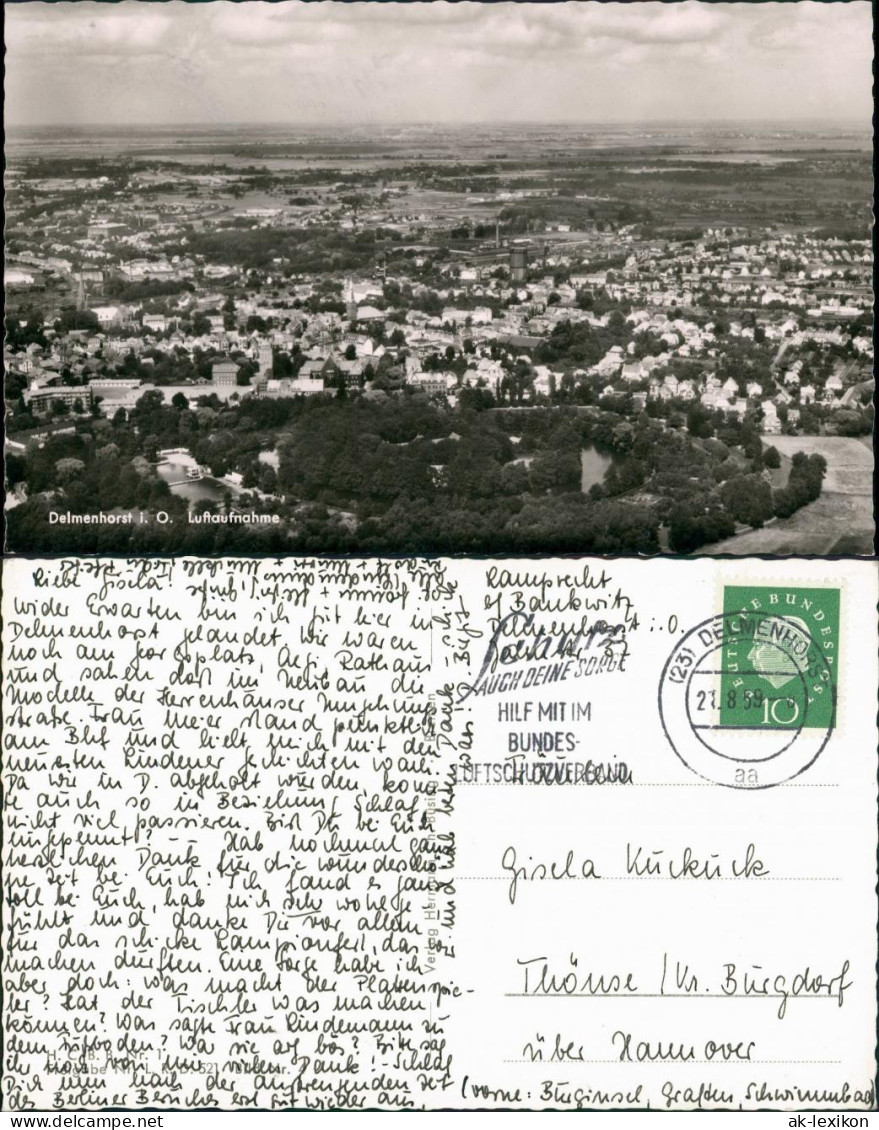 Delmenhorst i. O. Luftaufnahme
Liebe Gisela!
Wider Erwarten bin ich gut hier in
Delmenhorst gelandet. Wir waren
noch am Goseplatz,
und sahen daß im Neubau die
Modelle der Herrenhäuser
straße. Frau Meier stand pünktlich
am Bhf und hielt mich mit den
neuesten Lindener Geschichten wach.
Da wir in D. abgeholt wurden, konn-
te auch so in Beziehung Schlaf
nicht viel passieren. Bist Du bei Euch
Hab nochmal ganz
herzlichen Dank für die wundeschö-
ne Zeit bei Euch! Ich fand es ganz
toll bei Euch, hab mich sehr wohl ge-
fühlt und danke Dir vor allem
für das schicke Lampionfest, das wir
machen durften. Eine Sorge habe ich
aber doch: was macht der Plattenspie-
ler? Hat der Tischler was machen
können? Was sagte Frau Lindemann zu
dem Fußboden? War sie arg bös? Bitte sag
ihr noch von mir vielen Dank! - Schlaf
Dich nun nach der anstrengenden Zeit
des Berliner Besuches erst gut wieder aus,
H. C. B. B. Nr. 1
Verlag Herm.
Lamprecht
b/ Bankwitz
Delmenhorst i. O.
AUCH DEINE SORGE
HILF MIT IM
BUNDES-
LUFTSCHUTZVERBAND
(23) DELMENHORST
21.8.59
aa
DEUTSCHE BUNDESPOST
10
Fräulein
Gisela Kuckuck
Thönse / Kr. Burgdorf
über Hannover
(vorne: Burginsel, Graften, Schwimmbad)
ak-lexikon